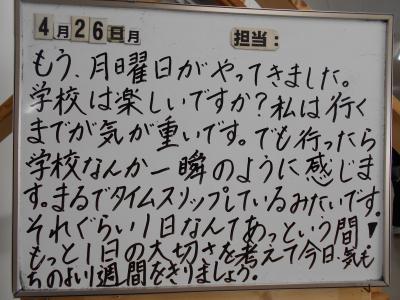 4月26日月 担当:
もう、月曜日がやってきました。
学校は楽しいですか?私は行く
までが気が重いです。でも行ったら
学校なんか一瞬のように感じま
す。まるでタイムスリップしているみたいです。
それぐらい1日なんてあっという間
もっと1日の大切さを考えて今日、気も
ちのよい1週間をきりましょう。